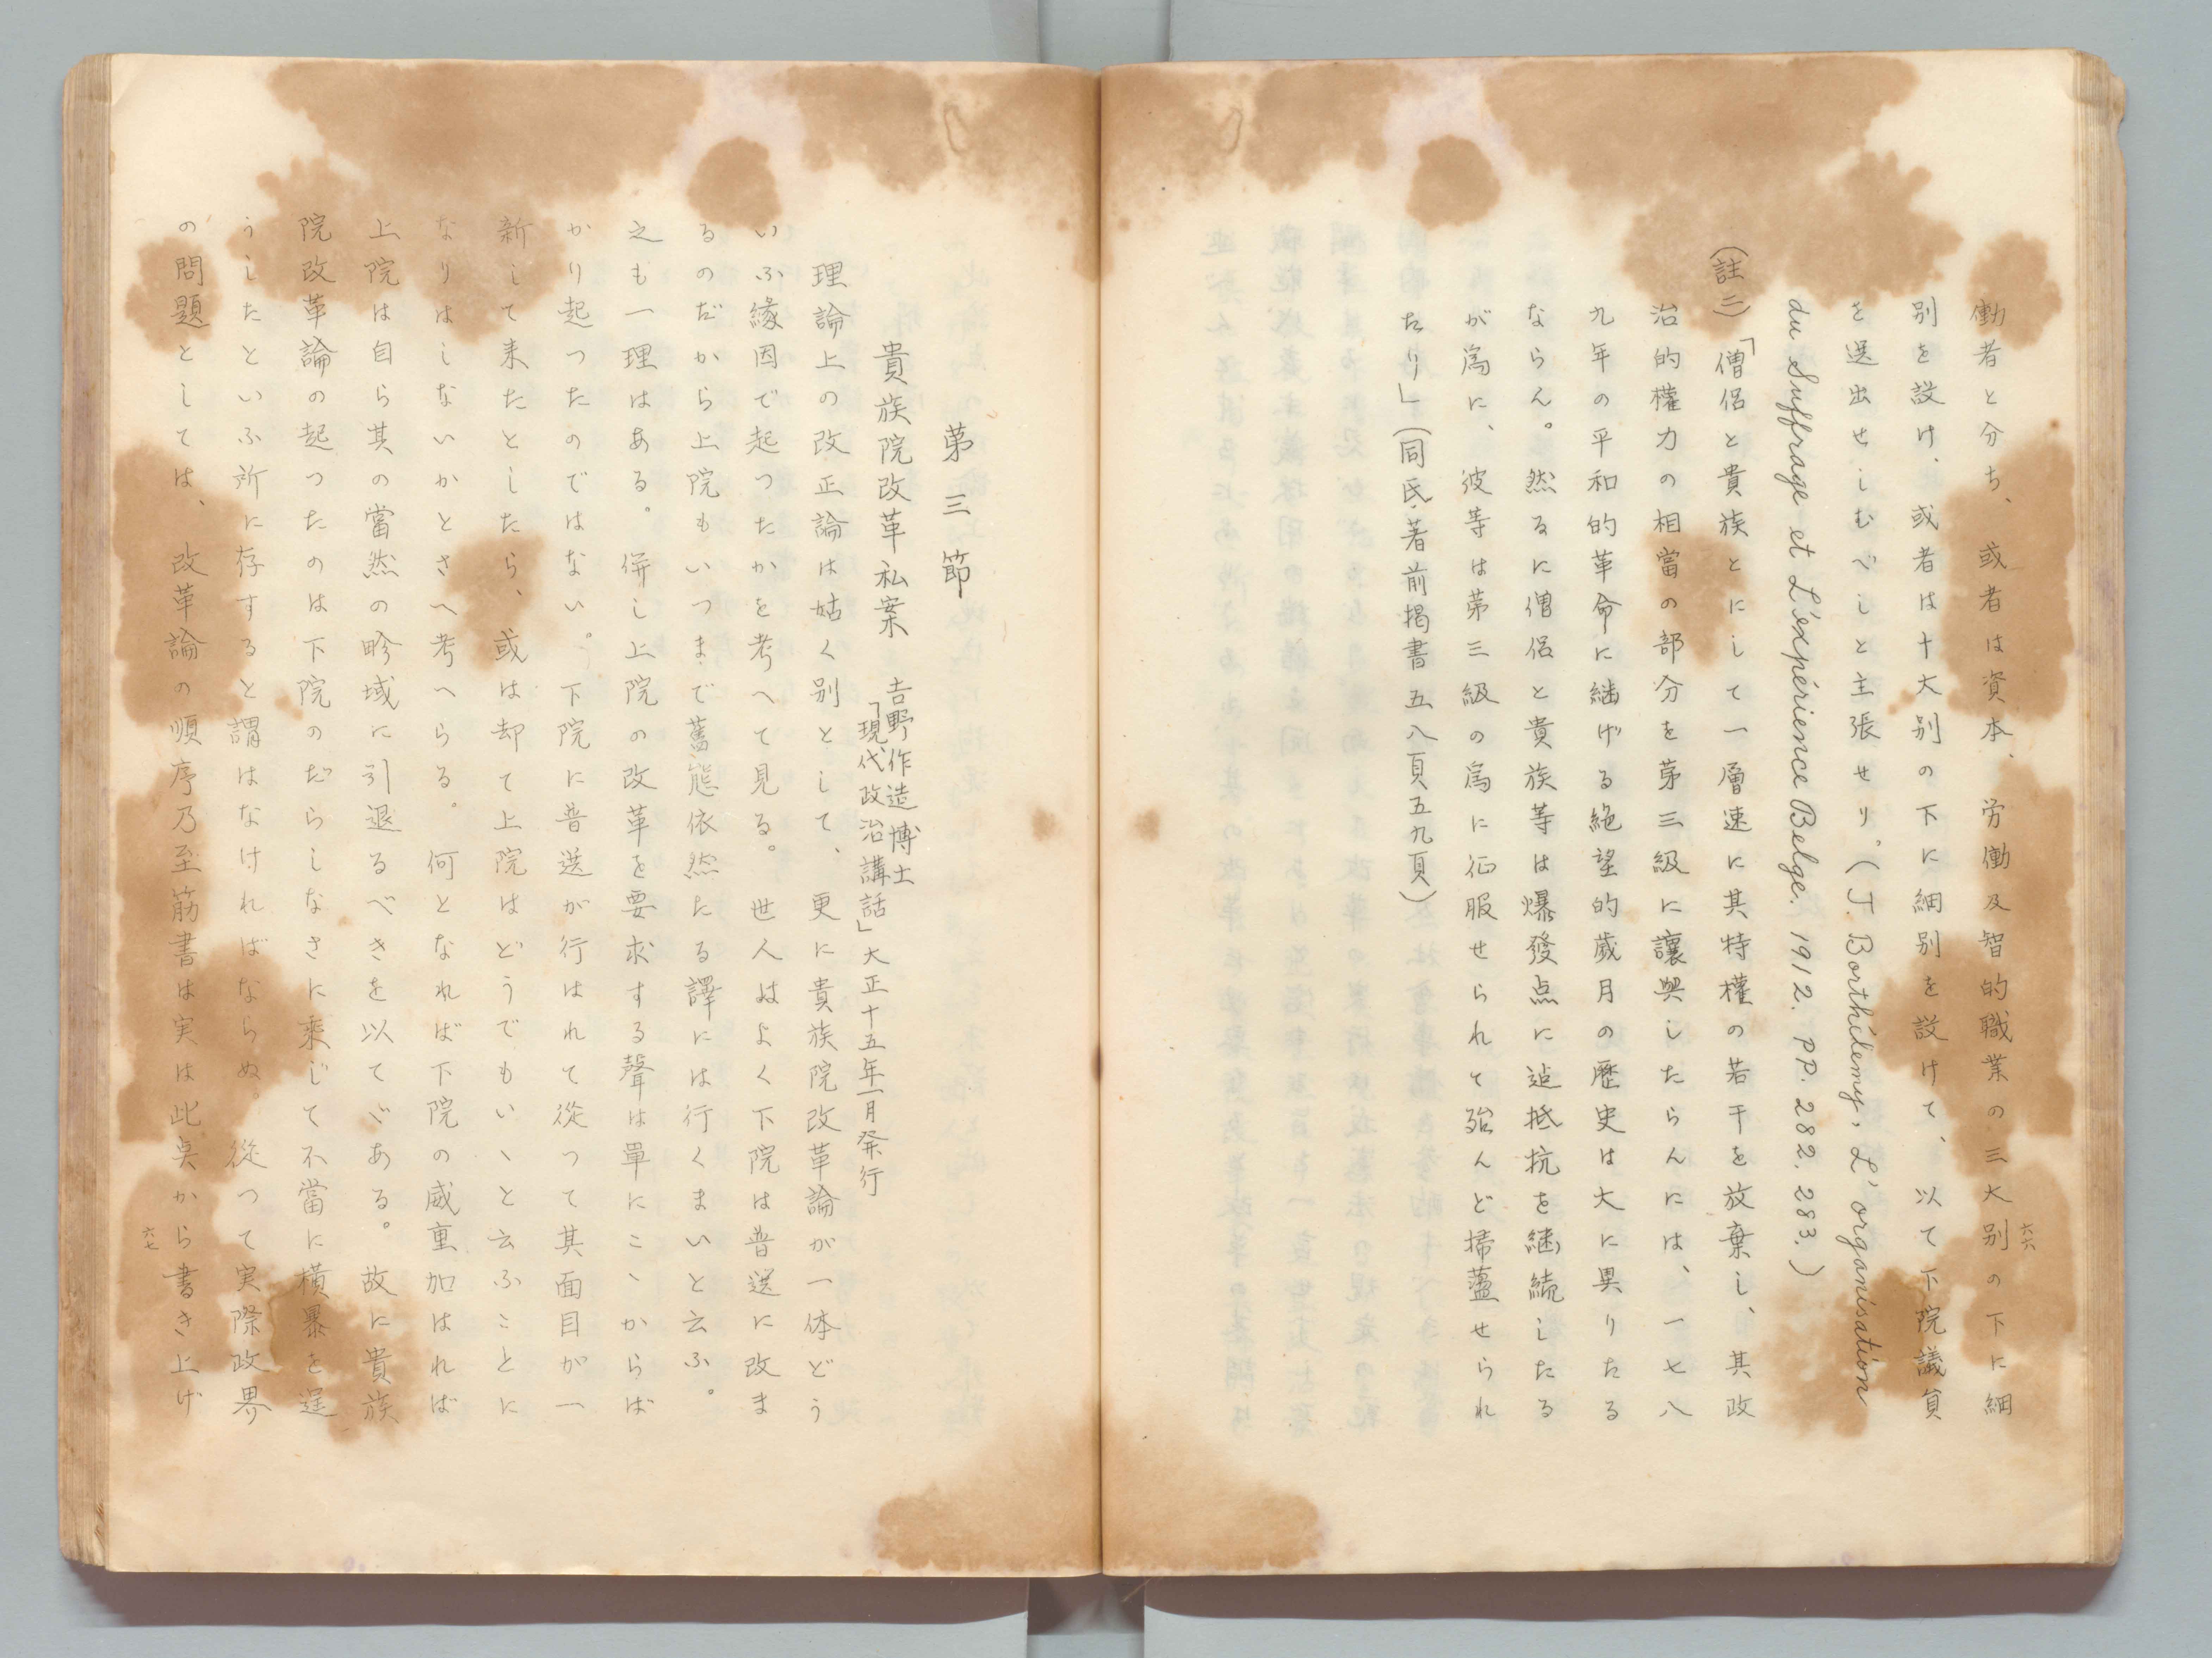 働者と分ち、或者は資本、労働及智的職業の三大別の下に細
別を設け、或者は十大別の下に細別を設けて、以て下院議員
を選出せしむべしと主張せり。(J. Borthélemy, L'organisation
du Suffrage et L'éxpérience Belge. 1912. PP. 282. 283.)
(註二)「僧侶と貴族とにして一層速に其特權の若干を放棄し、其政
治的權力の相當の部分を第三級に讓與したらんには、一七八
九年の平和的革命に継げる絶望的歳月の歴史は大に異りたる
ならん。然るに僧侶と貴族等は爆發点に迠抵抗を継続したる
が為に、彼等は第三級の為に征服せられて殆んど掃蘯せられ
たり」(同氏著前掲書五八頁五九頁)
六六
第三節
貴族院改革私案 吉野作造博士
「現代政治講話」大正十五年一月発行
理論上の改正論は姑く別として、更に貴族院改革論が一体どう
いふ縁因で起つたかを考へて見る。世人はよく下院は普選に改ま
るのだから上院もいつまで舊態依然たる譯には行くまいと云ふ。
之も一理はある。併し上院の改革を要求する聲は單にこゝからば
かり起つたのではない。下院に普選が行はれて從つて其面目が一
新して来たとしたら、或は却て上院はどうでもいゝと云ふことに
なりはしないかとさへ考へらる。何となれば下院の威重加はれば
上院は自ら其の當然の畛域に引退るべきを以てゞある。故に貴族
院改革論の起つたのは下院のだらしなさに乗じて不當に橫暴を逞
うしたといふ所に存すると謂はなければならぬ。從つて実際政界
の問題としては、改革論の順序乃至筋書は実は此点から書き上げ
六七